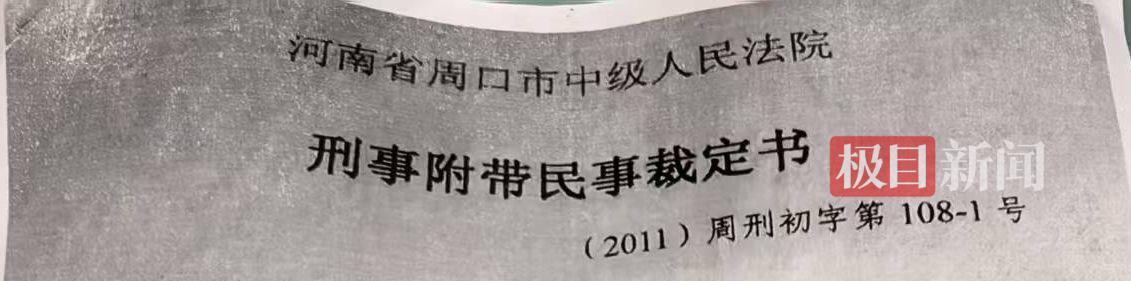 河南省周口市中级人民法院
刑事附带民事裁定书
极目新闻
（2011）周刑初字第 108-1 号